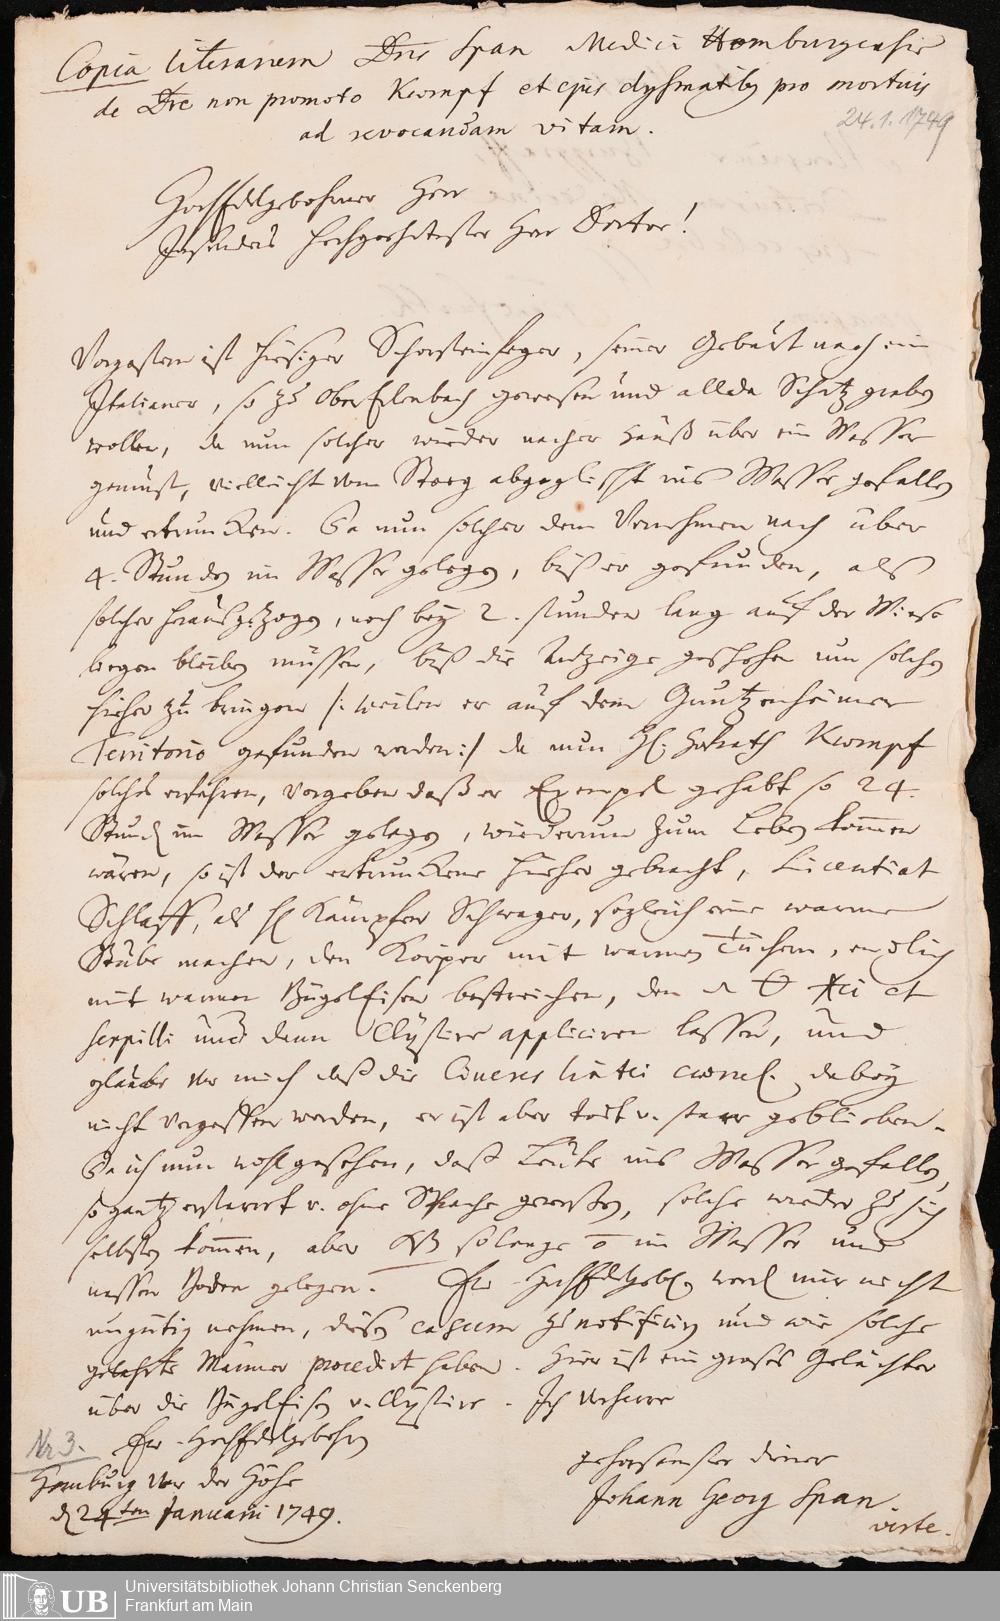 Copia literarum Dni Span Medici Homburgensis
de Dre non promoto Kaempf et ejus dysmatibus pro mortuis
ad revocandam vitam.
24.1.1749
HochEdelgebohrner Herr
Insonders hochgeehrtester Herr Doctor!
Vorgestern ist hiesiger Schorsteinfeger, seiner Gebürt nach ein
Italianer, so zu OberErlenbach gewesen und allda Schätz graben
wollen, da nun solcher wieder nacher Hauß über ein Wasser
gemüst, vielleicht vom Steeg abgeglischt ins Wasser gefallen
und ertruncken. Da nun solcher dem Vernehmen nach über
4. Stunden im Wasser gelegen, biß er gefunden, als
solcher herausgezogen, noch bey 2. stunden lang auf der Wiese
liegen bleiben müssen, biß die Anzeige geschehen um solchen
hieher zu bringen /: weilen er auf dem Guntzenheimer
Territorio gefunden worden :/ da nun H. Hofrath Kaempf
solches erfahren, vorgeben daß er Exempel gehabt so 24.
Stund im Wasser gelegen, wiederum zum Leben kommen
wären, so ist der ertrunckene hieher gebracht, Licentiat
Schlaff, als H Kämpfen Schwager, sogleich eine warme
Stube machen, den Körper mit warmen Tüchern, endlich
mit warmen Bügel Eisen bestreichen, den
serpilli und dann Clystire appliciren lassen, und
glaube vor mich daß die Cineres lintei dabey
nicht vergessen worden, er ist aber todt u. starr geblieben.
Da ich nun wohl gesehen, daß Leute ins Wasser gefallen,
so gantz erstarret u. ohne Sprache gewesen, solche wieder zu sich
selbsten kommen, aber solange im Wasser und
nassen Boden gelegen. Ew. HochEdelgeb. werd mir nicht
ungütig nehmen, diesen casum zu notificiren und wie solche
gelehrte Männer procedirt haben. Hier ist ein grosses Gelächter
über die Bügel Eisen u. Clystire. Ich verharre
Ew. HochEdelgebohrn
Nr 3.
gehorsamster diener
Homburg vor der Höhe
Johann Georg Span.
d 24ten Januarii 1749.
verte.
Universitätsbibliothek Johann Christian Senckenberg
Frankfurt am Main
UB